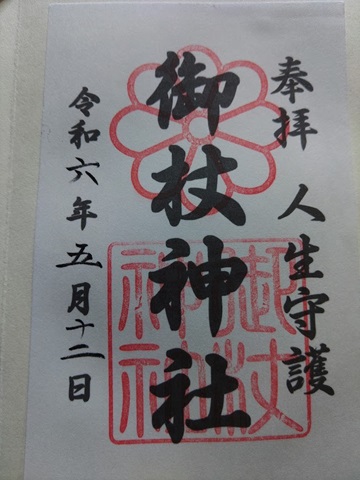 奉拝 人生守護
御杖神社
御杖
神社
令和六年五月十二日